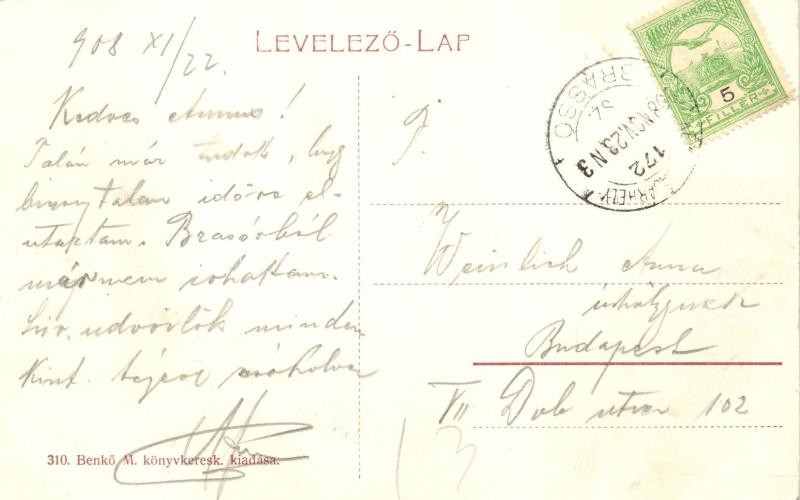 908 XI/22.
LEVELEZŐ-LAP
Kedves Annus!
Talán már tudok, hogy
bizonytalan időre el-
utaztam. Brassóból
már nem irhattam.
Szív. üdvözlök minden-
kint.
T.
Weinlich Anna
úrhölgynek
Budapest
VII Dob utca 102
13
310. Benkő M. könyvkeresk. kiadása.
MAGYAR KIR. POSTA
5
FILLÉR
BRASSÓ
54
908 NOV. 23. N 3
172